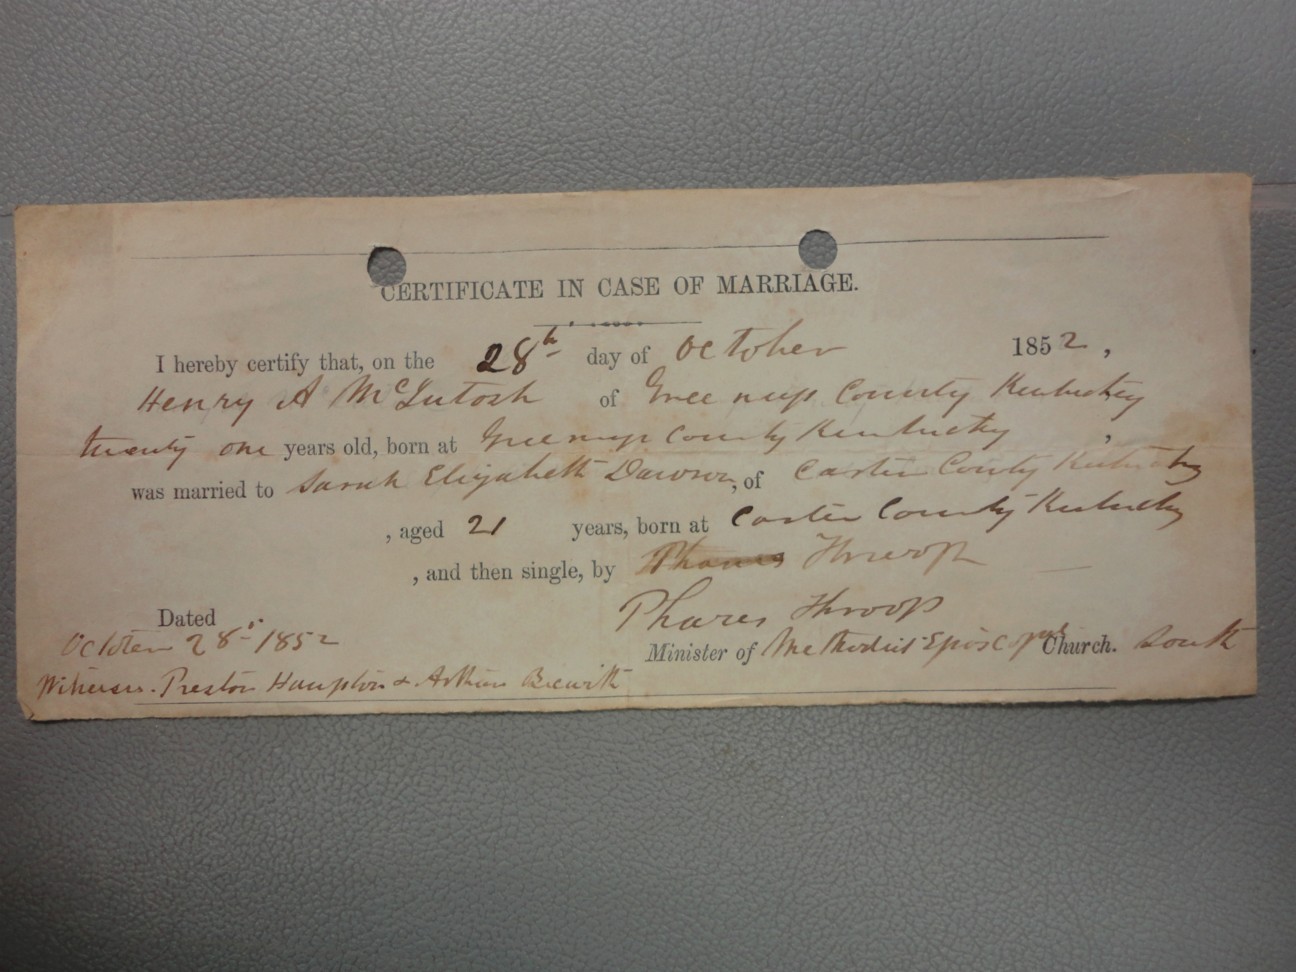 CERTIFICATE IN CASE OF MARRIAGE.
I hereby certify that, on the 28th day of October 1852,
Henry A McIntosh of Greenup County Kentucky
twenty one years old, born at Greenup County Kentucky,
was married to Sarah Elizabeth Dawson, of Carter County Kentucky
, aged 21 years, born at Carter County Kentucky
, and then single, by Phares Throop
Phares Throop
Dated
October 28th 1852
Minister of Methodist Episcopal Church. South
Witnesses. Preston Hampton & Arthur